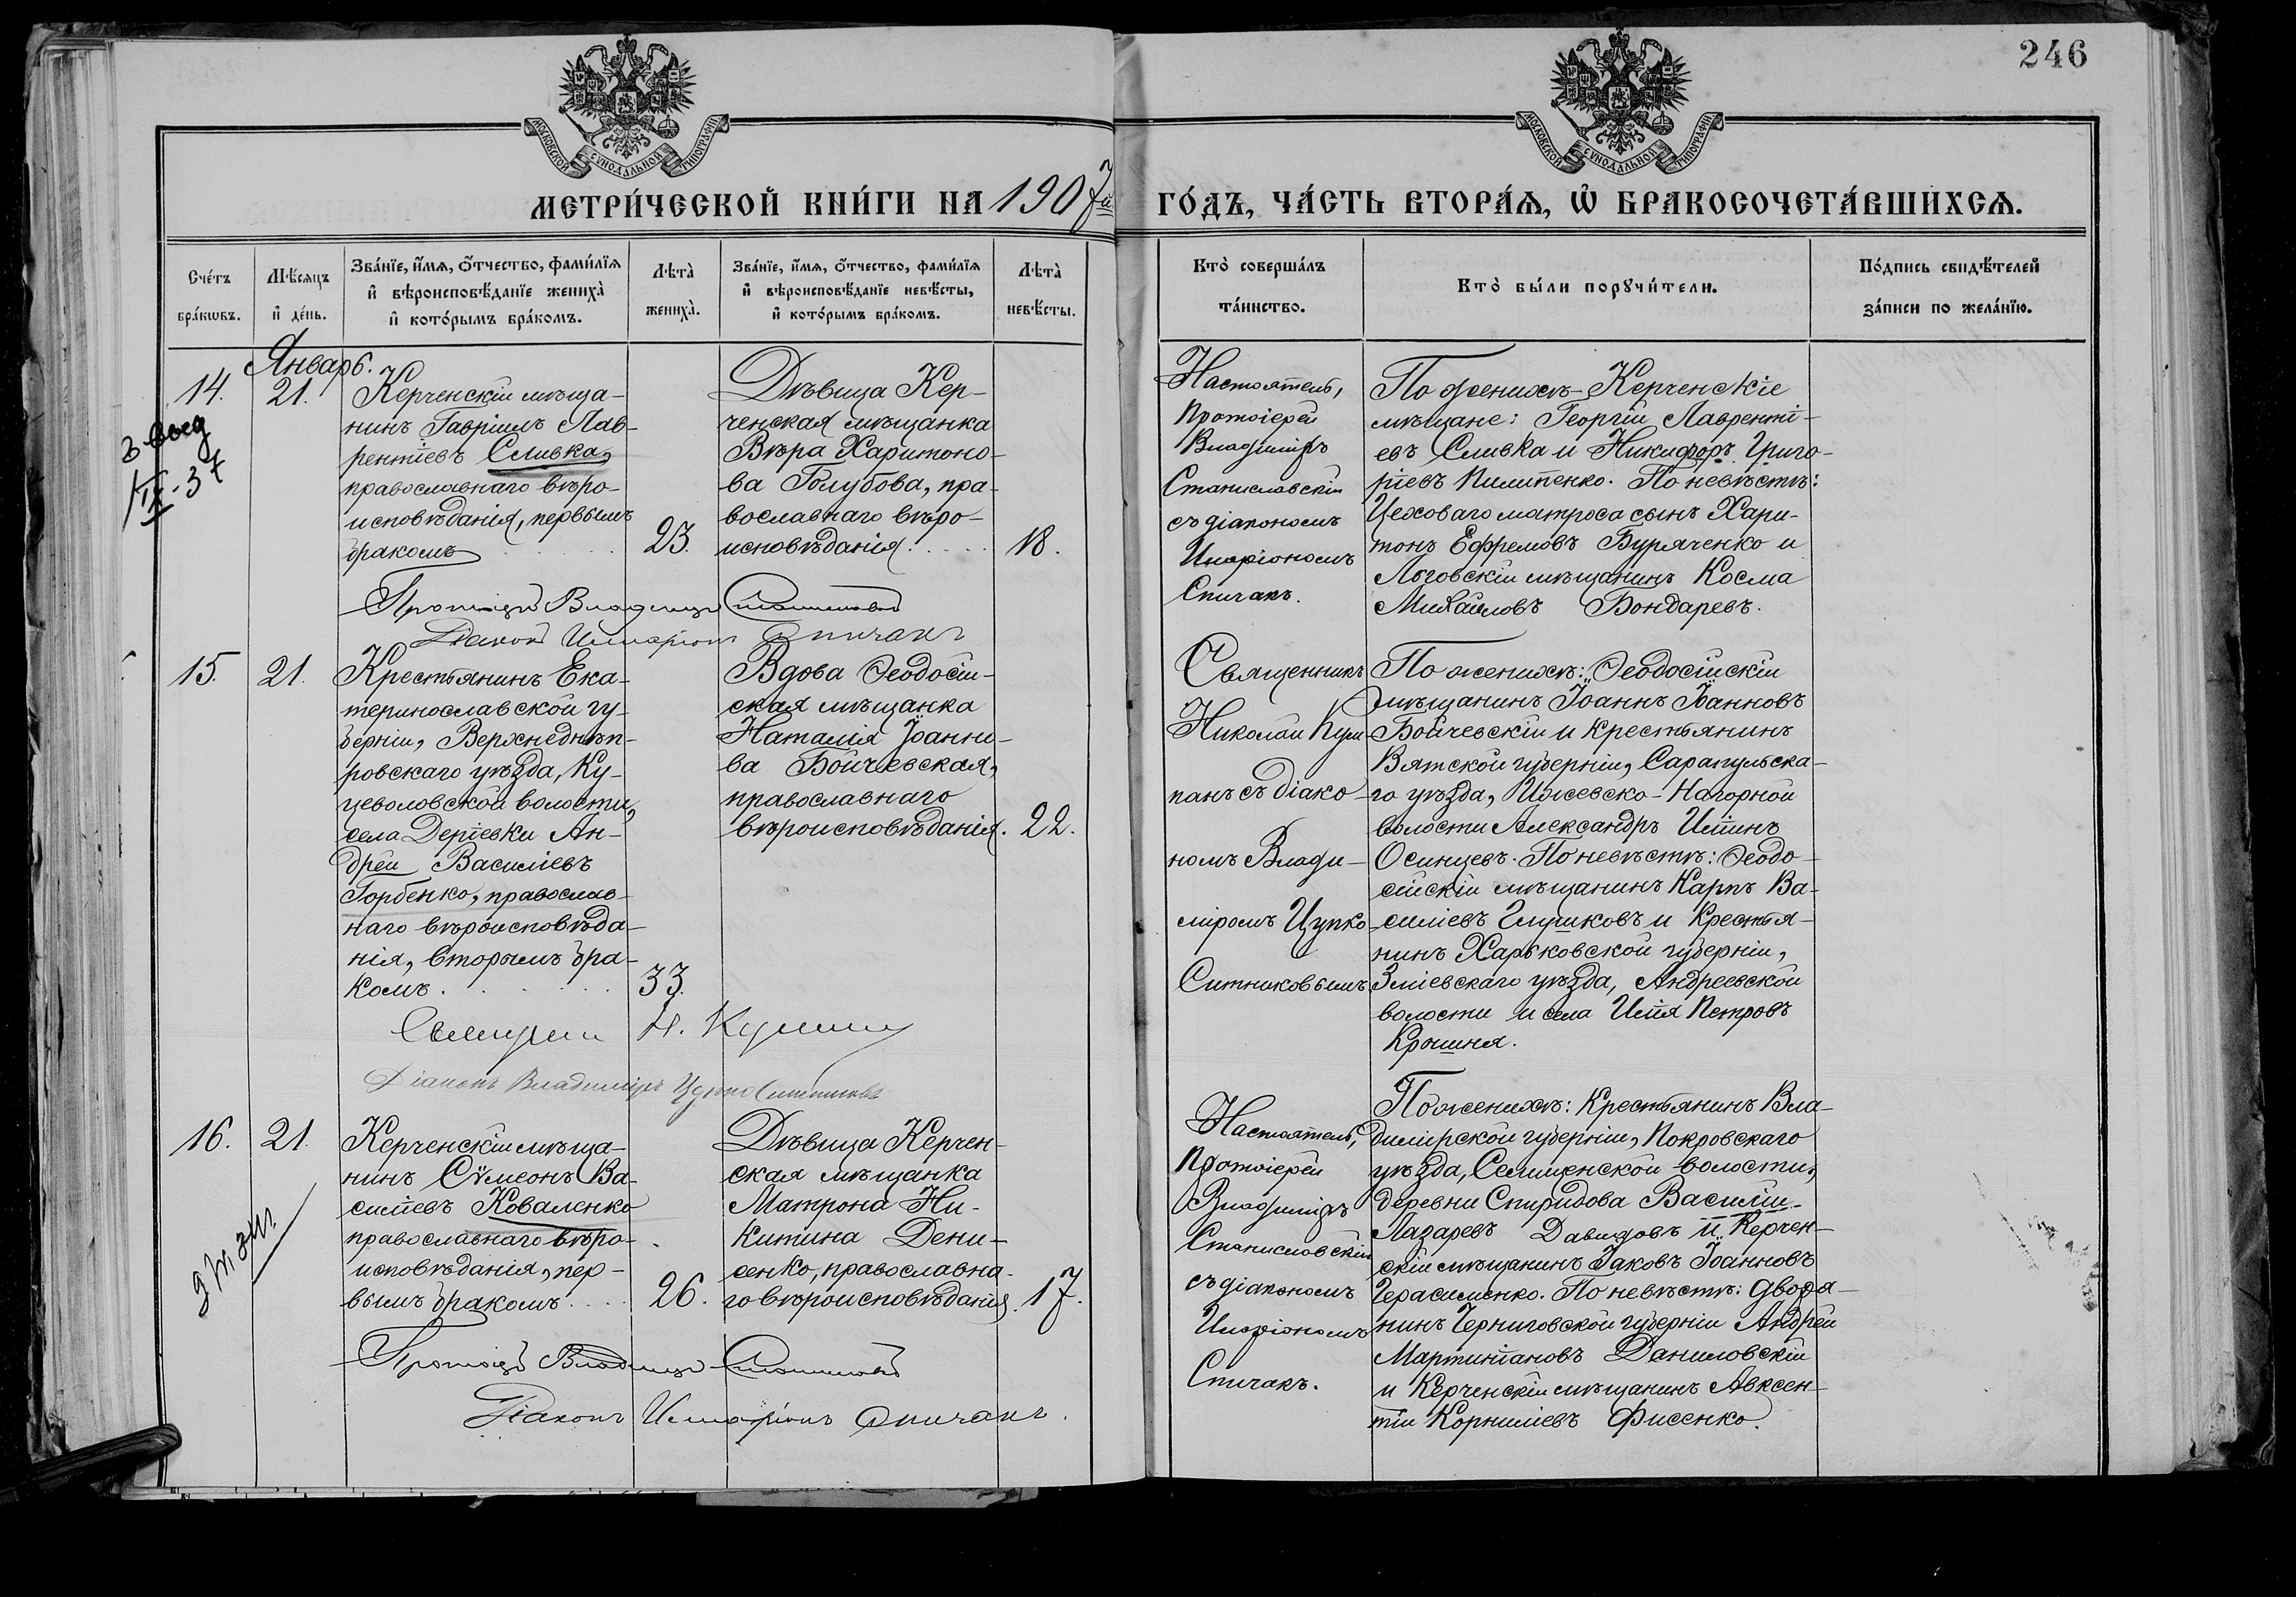 246
МОСКОВСКОЙ СѴНОДАЛЬНОЙ ТИПОГРАФІИ
МОСКОВСКОЙ СѴНОДАЛЬНОЙ ТИПОГРАФІИ
МЕТРИ́ЧЕСКОЙ КНИ́ГИ НА 1907й ГО́ДЪ, ЧА́СТЬ ВТОРА́Я, Ѡ БРАКОСОЧЕТА́ВШИХСЯ.
Сче́тъ бра́кѡвъ.
Мѣ́сяцъ и де́нь.
Зва́нїе, и́мя, о́тчество, фами́лїя
и вѣроисповѣ́данїе жениха̀
и кото́рымъ бра́комъ.
Лѣта̀ жениха̀.
Зва́нїе, и́мя, о́тчество, фами́лїя
и вѣроисповѣ́данїе невѣ́сты,
и кото́рымъ бра́комъ.
Лѣта̀ невѣ́сты.
Кто̀ соверша́лъ
та́инство.
Кто̀ бы́ли порꙋчи́тели.
По́дпись свидѣ́телей
за́писи по жела́нїю.
Январь.
14.
21.
Керченскій мѣща-
нинъ Гавріилъ Лав-
рентіевъ Сливка,
православнаго вѣро-
исповѣданія, первымъ
бракомъ
23.
Дѣвица Кер-
ченская мѣщанка
Вѣра Харитоно-
ва Голубова, пра-
вославнаго вѣро-
исповѣданія.
18.
Настоятель,
Протоіерей
Владиміръ
Станиславскій
съ діакономъ
Иларіономъ
Спичакъ.
По женихѣ Керченскіе
мѣщане: Георгій Лавренті-
евъ Сливка и Никифоръ Григо-
ріевъ Пилипенко. По невѣстѣ:
Цеховаго матроса сынъ Хари-
тонъ Ефремовъ Буряченко и
Льговскій мѣщанинъ Косма
Михайловъ Бондаревъ.
Діаконъ Иларіонъ Спичакъ
15.
21.
Крестьянинъ Ека-
теринославской гу-
берніи, Верхнеднѣп-
ровскаго уѣзда, Ку-
цеволовской волости,
села Деріевки Ан-
дрей Василіевъ
Горбенко, православ-
наго вѣроисповѣда-
нія, вторымъ бра-
комъ.
33.
Вдова Ѳеодосій-
ская мѣщанка
Наталія Іоанно-
ва Бойчевская,
православнаго
вѣроисповѣданія.
22.
Священникъ
Николай Куш-
панъ съ діако-
номъ Влади-
міромъ Цупко
Ситниковымъ
По женихѣ: Ѳеодосійскій
мѣщанинъ Іоаннъ Іоанновъ
Бойчевскій и крестьянинъ
Вятской губерніи, Сарапульска-
го уѣзда, Ижевско-Нагорной
волости Александръ Иліинъ
Осинцевъ. По невѣстѣ: Ѳеодо-
сійскій мѣщанинъ Карпъ Ва-
силіевъ Глушковъ и Крестья-
нинъ Харьковской губерніи,
Зміевскаго уѣзда, Андреевской
волости и села Илія Петровъ
Крошня.
Діаконъ Владиміръ Цупко Ситниковъ
16.
21.
Керченскій мѣща-
нинъ Сѵмеонъ Ва-
силіевъ Коваленко
православнаго вѣро-
исповѣданія, пер-
вымъ бракомъ.
26.
Дѣвица Керчен-
ская мѣщанка
Матрона Ни-
китина Дени-
сенко, православна-
го вѣроисповѣданія.
17.
Настоятель,
Протоіерей
Владиміръ
Станиславскій
съ діакономъ
Иларіономъ
Спичакъ.
По женихѣ: Крестьянинъ Вла-
димірской губерніи, Покровскаго
уѣзда, Селищенской волости,
деревни Спиридова Василій
Лазаревъ Давидовъ и Керчен-
скій мѣщанинъ Іаковъ Іоанновъ
Герасименко. По невѣстѣ: дворя-
нинъ Черниговской губерніи Андрей
Мартиніановъ Даниловскій
и Керченскій мѣщанинъ Авксен-
тій Корниліевъ Фисенко.
Діаконъ Иларіонъ Спичакъ.